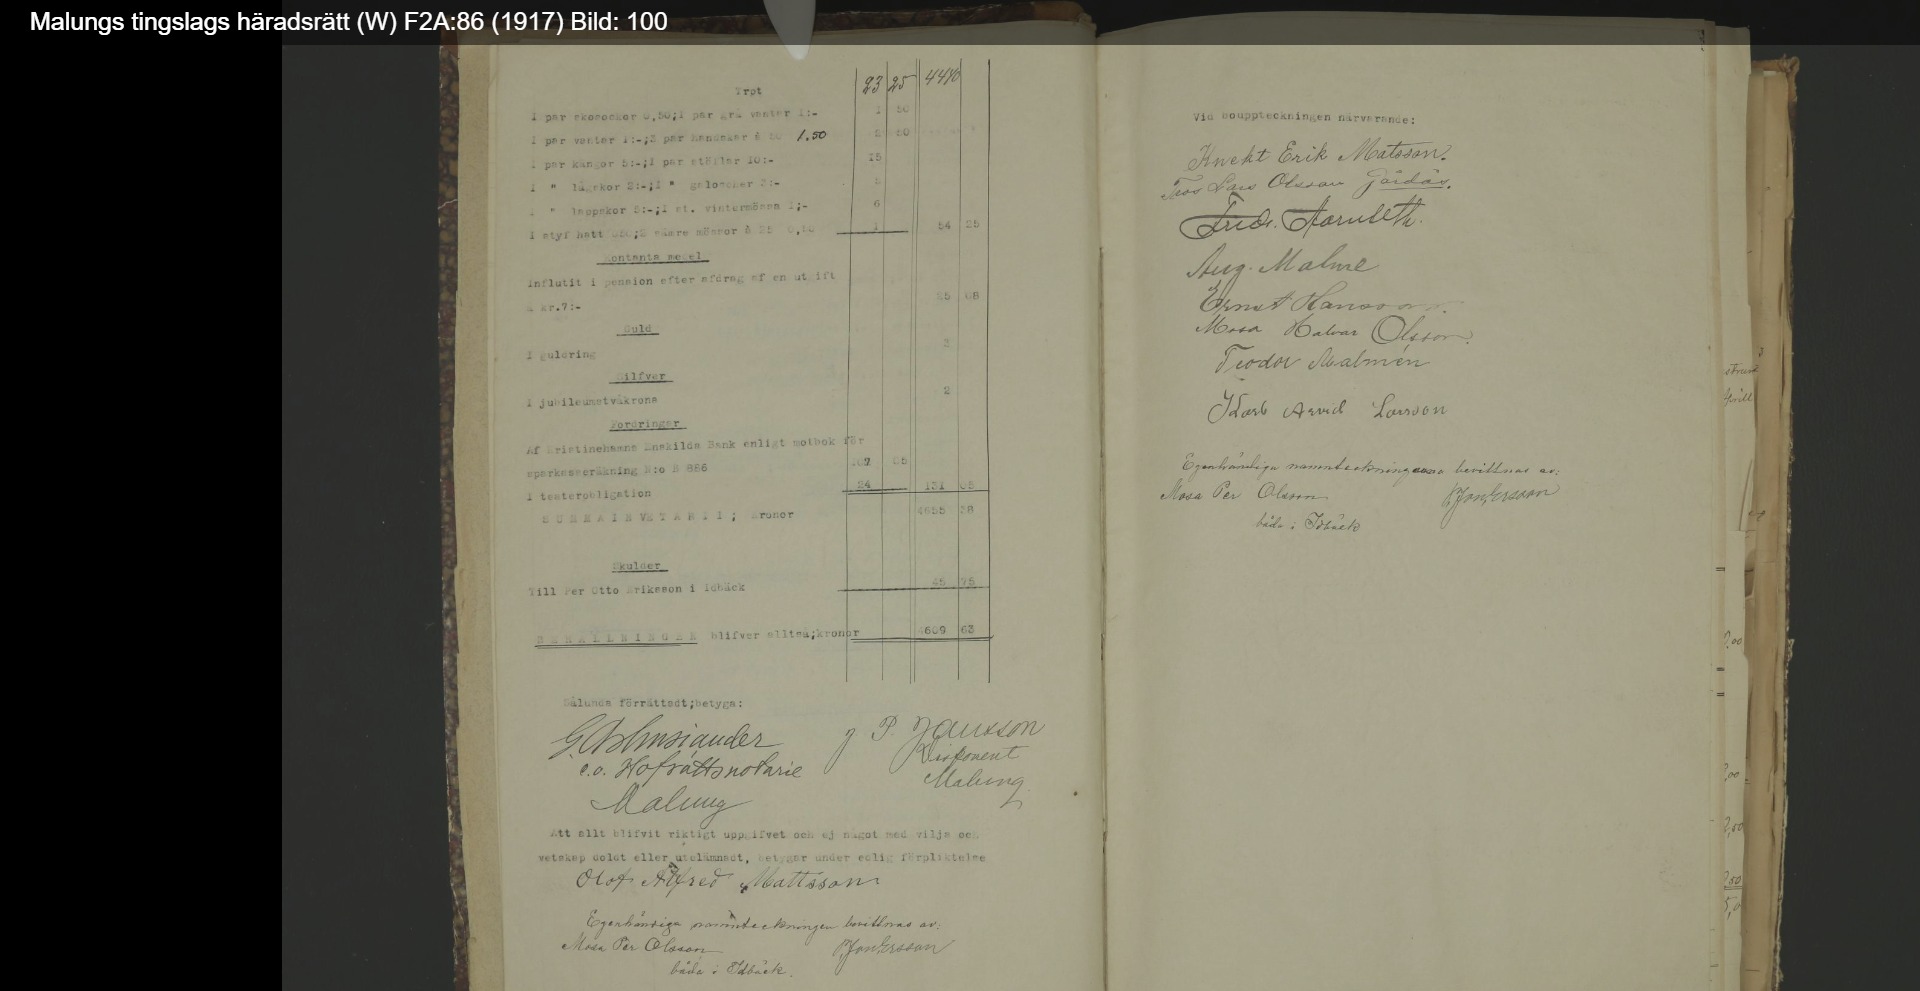 Malungs tingslags häradsrätt (W) F2A:86 (1917) Bild: 100
Trpt 23 25 4440
1 par skosockor 0,50;1 par grå vantar 1:- 1 50
1 par vantar 1:-;3 par handskar à 50 1.50 2 50
1 par kängor 5:-;1 par stöflar 10:- 15
1 " lågskor 2:-;1 " galoscher 3:- 5
1 " lappskor 5:-;1 st. vintermössa 1;- 6
1 styf hatt 0,50;2 sämre mössor à 25 0,50 1 54 25
Kontanta medel
Influtit i pension efter afdrag af en utgift
à kr.7:- 25 08
Guld
1 guldring 2
Silfver
1 jubileumstvåkrona 2
Fordringar
Af Kristinehamns Enskilda Bank enligt motbok för
sparkasseräkning N:o B 886 107 05
1 teaterobligation 24 131 05
SUMMA INVENTARII; kronor 4655 38
Skulder
Till Per Otto Eriksson i Idbäck 45 75
BEHÅLLNINGEN blifver alltså;kronor 4609 63
Sålunda förrättadt;betyga:
P. Jansson
e.o. Hofrättsnotarie Disponent
Malung Malung
Att allt blifvit riktigt uppgifvet och ej något med vilja och
vetskap doldt eller utelämnadt, betygar under edlig förpliktelse
Olof Alfred Mattsson
Egenhändiga namnteckningen bevittnas av:
Mosa Per Olsson P. Jon Ersson
båda i Idbäck.
Vid bouppteckningen närvarande:
Knekt Erik Matsson.
Lars Olsson Gärdås.
Aug. Malme
Ernst Hansson.
Mosa Halvar Olsson.
Teodor Malmén
Karl Arvid Larsson
Egenhändiga namnteckningarna bevittnas av:
Mosa Per Olsson P. Jon Ersson
båda i Idbäck